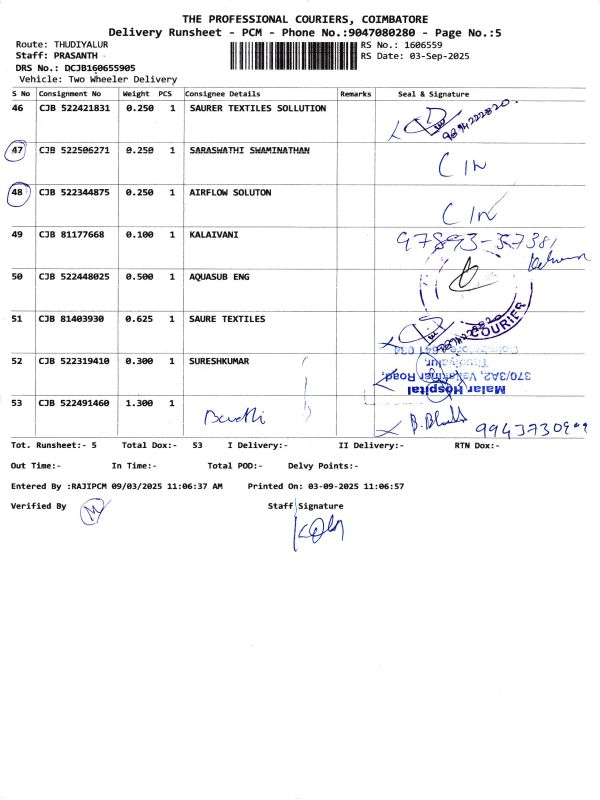 THE PROFESSIONAL COURIERS, COIMBATORE
Delivery Runsheet - PCM - Phone No.:9047080280 - Page No.:5
Route: THUDIYALUR
RS No.: 1606559
Staff: PRASANTH
RS Date: 03-Sep-2025
DRS No.: DCJB160655905
Vehicle: Two Wheeler Delivery
S No Consignment No Weight PCS Consignee Details Remarks Seal & Signature
46 CJB 522421831 0.250 1 SAURER TEXTILES SOLLUTION 9894222820
47 CJB 522506271 0.250 1 SARASWATHI SWAMINATHAN
48 CJB 522344875 0.250 1 AIRFLOW SOLUTON
49 CJB 81177668 0.100 1 KALAIVANI 97893-57381
50 CJB 522448025 0.500 1 AQUASUB ENG
51 CJB 81403930 0.625 1 SAURE TEXTILES
COURIER
52 CJB 522319410 0.300 1 SURESHKUMAR
Malar Hospital
370/3A2, Road,
Thudiyalur,
Coimbatore 641 034
53 CJB 522491460 1.300 1
Tot. Runsheet:- 5 Total Dox:- 53 I Delivery:- II Delivery:- RTN Dox:-
Out Time:- In Time:- Total POD:- Delvy Points:-
Entered By :RAJIPCM 09/03/2025 11:06:37 AM Printed On: 03-09-2025 11:06:57
Verified By Staff Signature